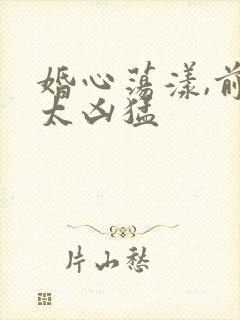 婚心荡漾,前
太凶猛
片山愁